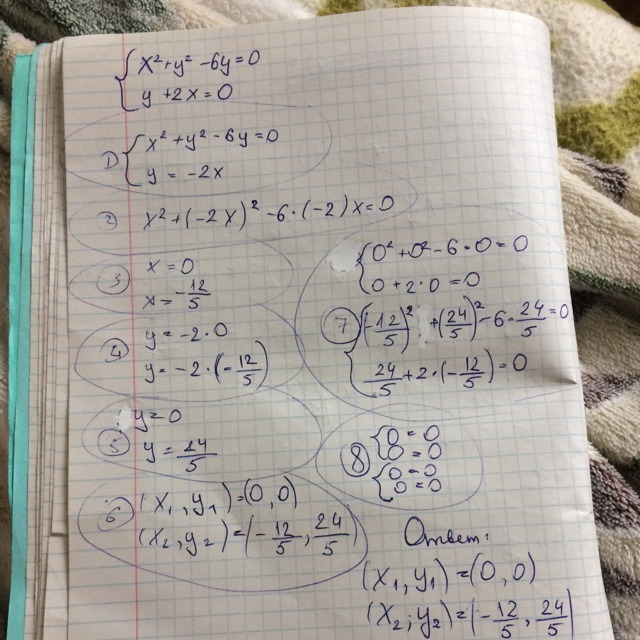 { x² + y² - 6y = 0
{ y + 2x = 0
1) { x² + y² - 6y = 0
{ y = -2x
2) x² + (-2x)² - 6·(-2)x = 0
3) x = 0
x = -12/5
4) y = -2·0
y = -2·(-12/5)
5) y = 0
y = 24/5
6) (x₁, y₁) = (0, 0)
(x₂, y₂) = (-12/5, 24/5)
7) { 0² + 0² - 6·0 = 0
{ 0 + 2·0 = 0
{ (-12/5)² + (24/5)² - 6·24/5 = 0
{ 24/5 + 2·(-12/5) = 0
8) { 0 = 0
{ 0 = 0
{ 0 = 0
{ 0 = 0
Ответ:
(x₁, y₁) = (0, 0)
(x₂; y₂) = (-12/5, 24/5)